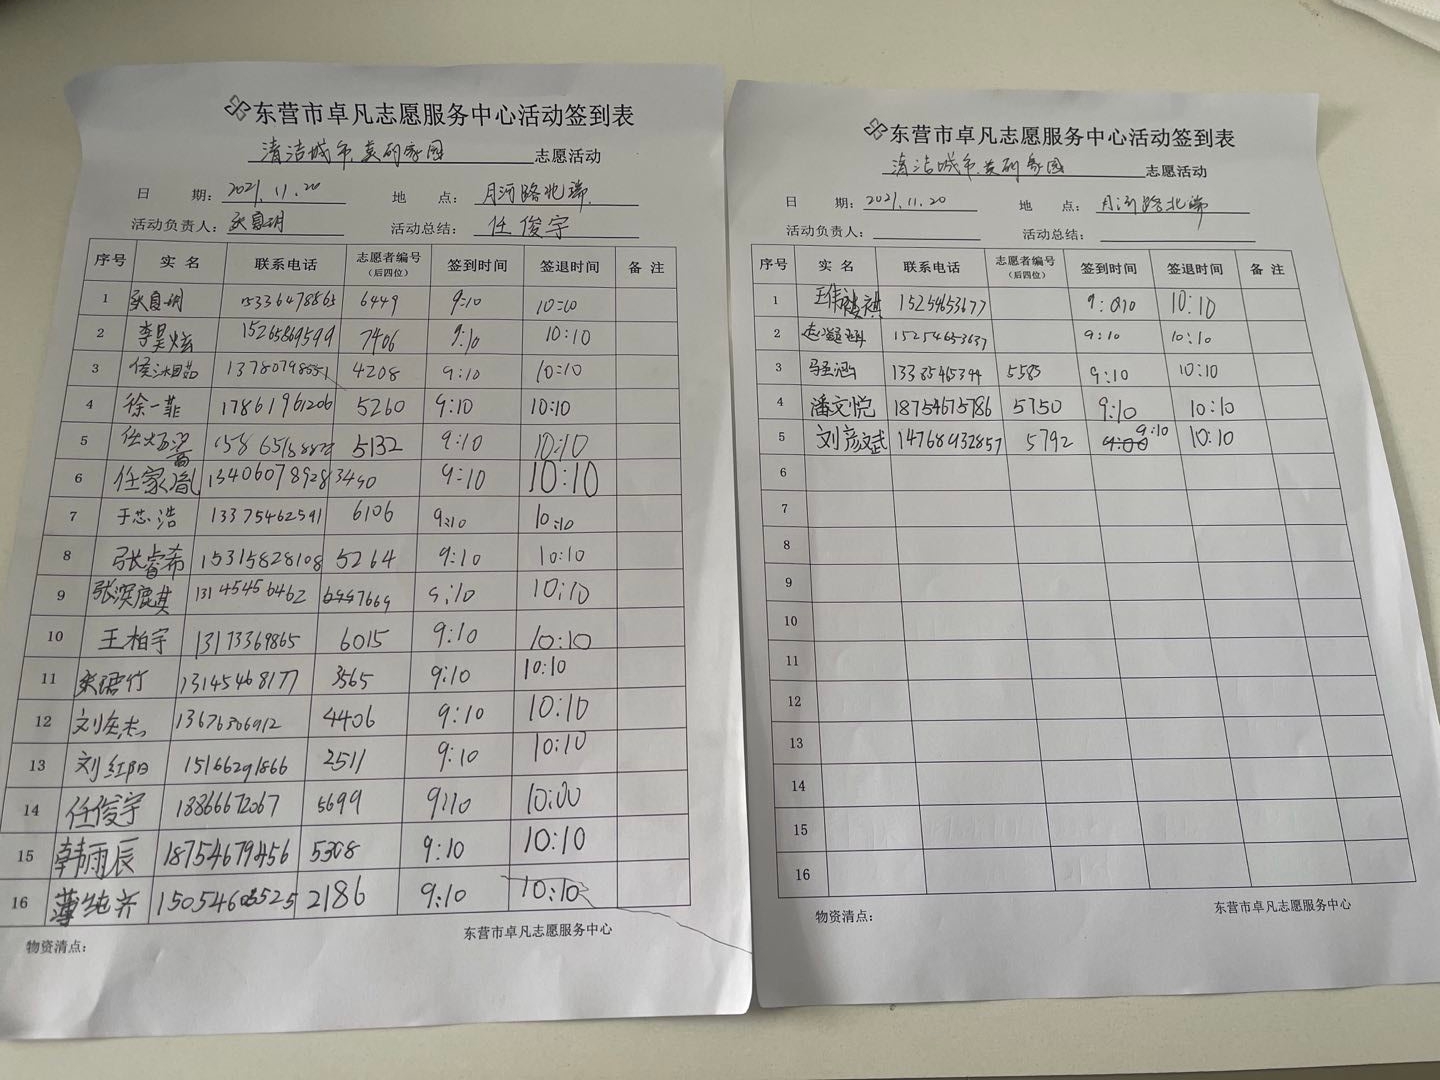 东营市卓凡志愿服务中心活动签到表
清洁城市.美丽家园 志愿活动
日 期: 2021.11.20 地 点: 月河路北端.
活动负责人: 活动总结: 任俊宇
序号 实 名 联系电话 志愿者编号(后四位) 签到时间 签退时间 备 注
1 15336478865 6449 9:10 10:10
2 李昊炫 15265869599 7406 9:10 10:10
3 13780798551 4208 9:10 10:10
4 徐一菲 17861961206 5260 9:10 10:10
5 5132 9:10 10:10
6 任家胤 13406078928 3440 9:10 10:10
7 于芯浩 13375462591 6106 9:10 10:10
8 张睿希 15315828108 5264 9:10 10:10
9 张淏鹿其 13145456462 7669 9:10 10:10
10 王柏宇 13173369865 6015 9:10 10:10
11 13145468177 3565 9:10 10:10
12 13676306912 4406 9:10 10:10
13 刘红阳 15166291866 2511 9:10 10:10
14 任俊宇 18866672067 5699 9:10 10:00
15 韩雨辰 18754679456 5308 9:10 10:10
16 薄纯齐 2186 9:10 10:10
物资清点: 东营市卓凡志愿服务中心
东营市卓凡志愿服务中心活动签到表
清洁城市.美丽家园 志愿活动
日 期: 2021.11.20 地 点: 月河路北端
活动负责人: 活动总结:
序号 实 名 联系电话 志愿者编号(后四位) 签到时间 签退时间 备 注
1 15254653677 9:10 10:10
2 15254653637 9:10 10:10
3 13385465344 5585 9:10 10:10
4 潘文悦 18754675786 5750 9:10 10:10
5 刘彦斌 14768932857 5792 9:00 9:10 10:10
6
7
8
9
10
11
12
13
14
15
16
物资清点: 东营市卓凡志愿服务中心